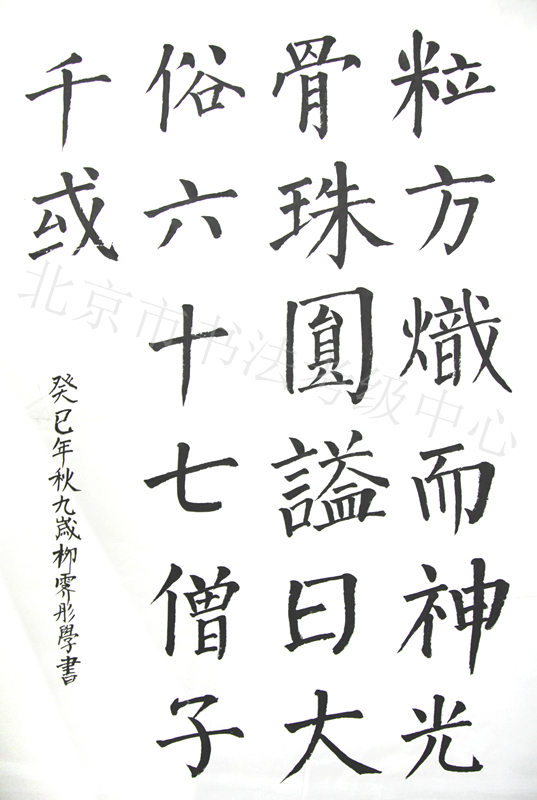 粒方熾而神光
骨珠圓謚曰大
俗六十七僧子
千或
癸巳年秋九歲柳霽彤學書
北京市书法考级中心